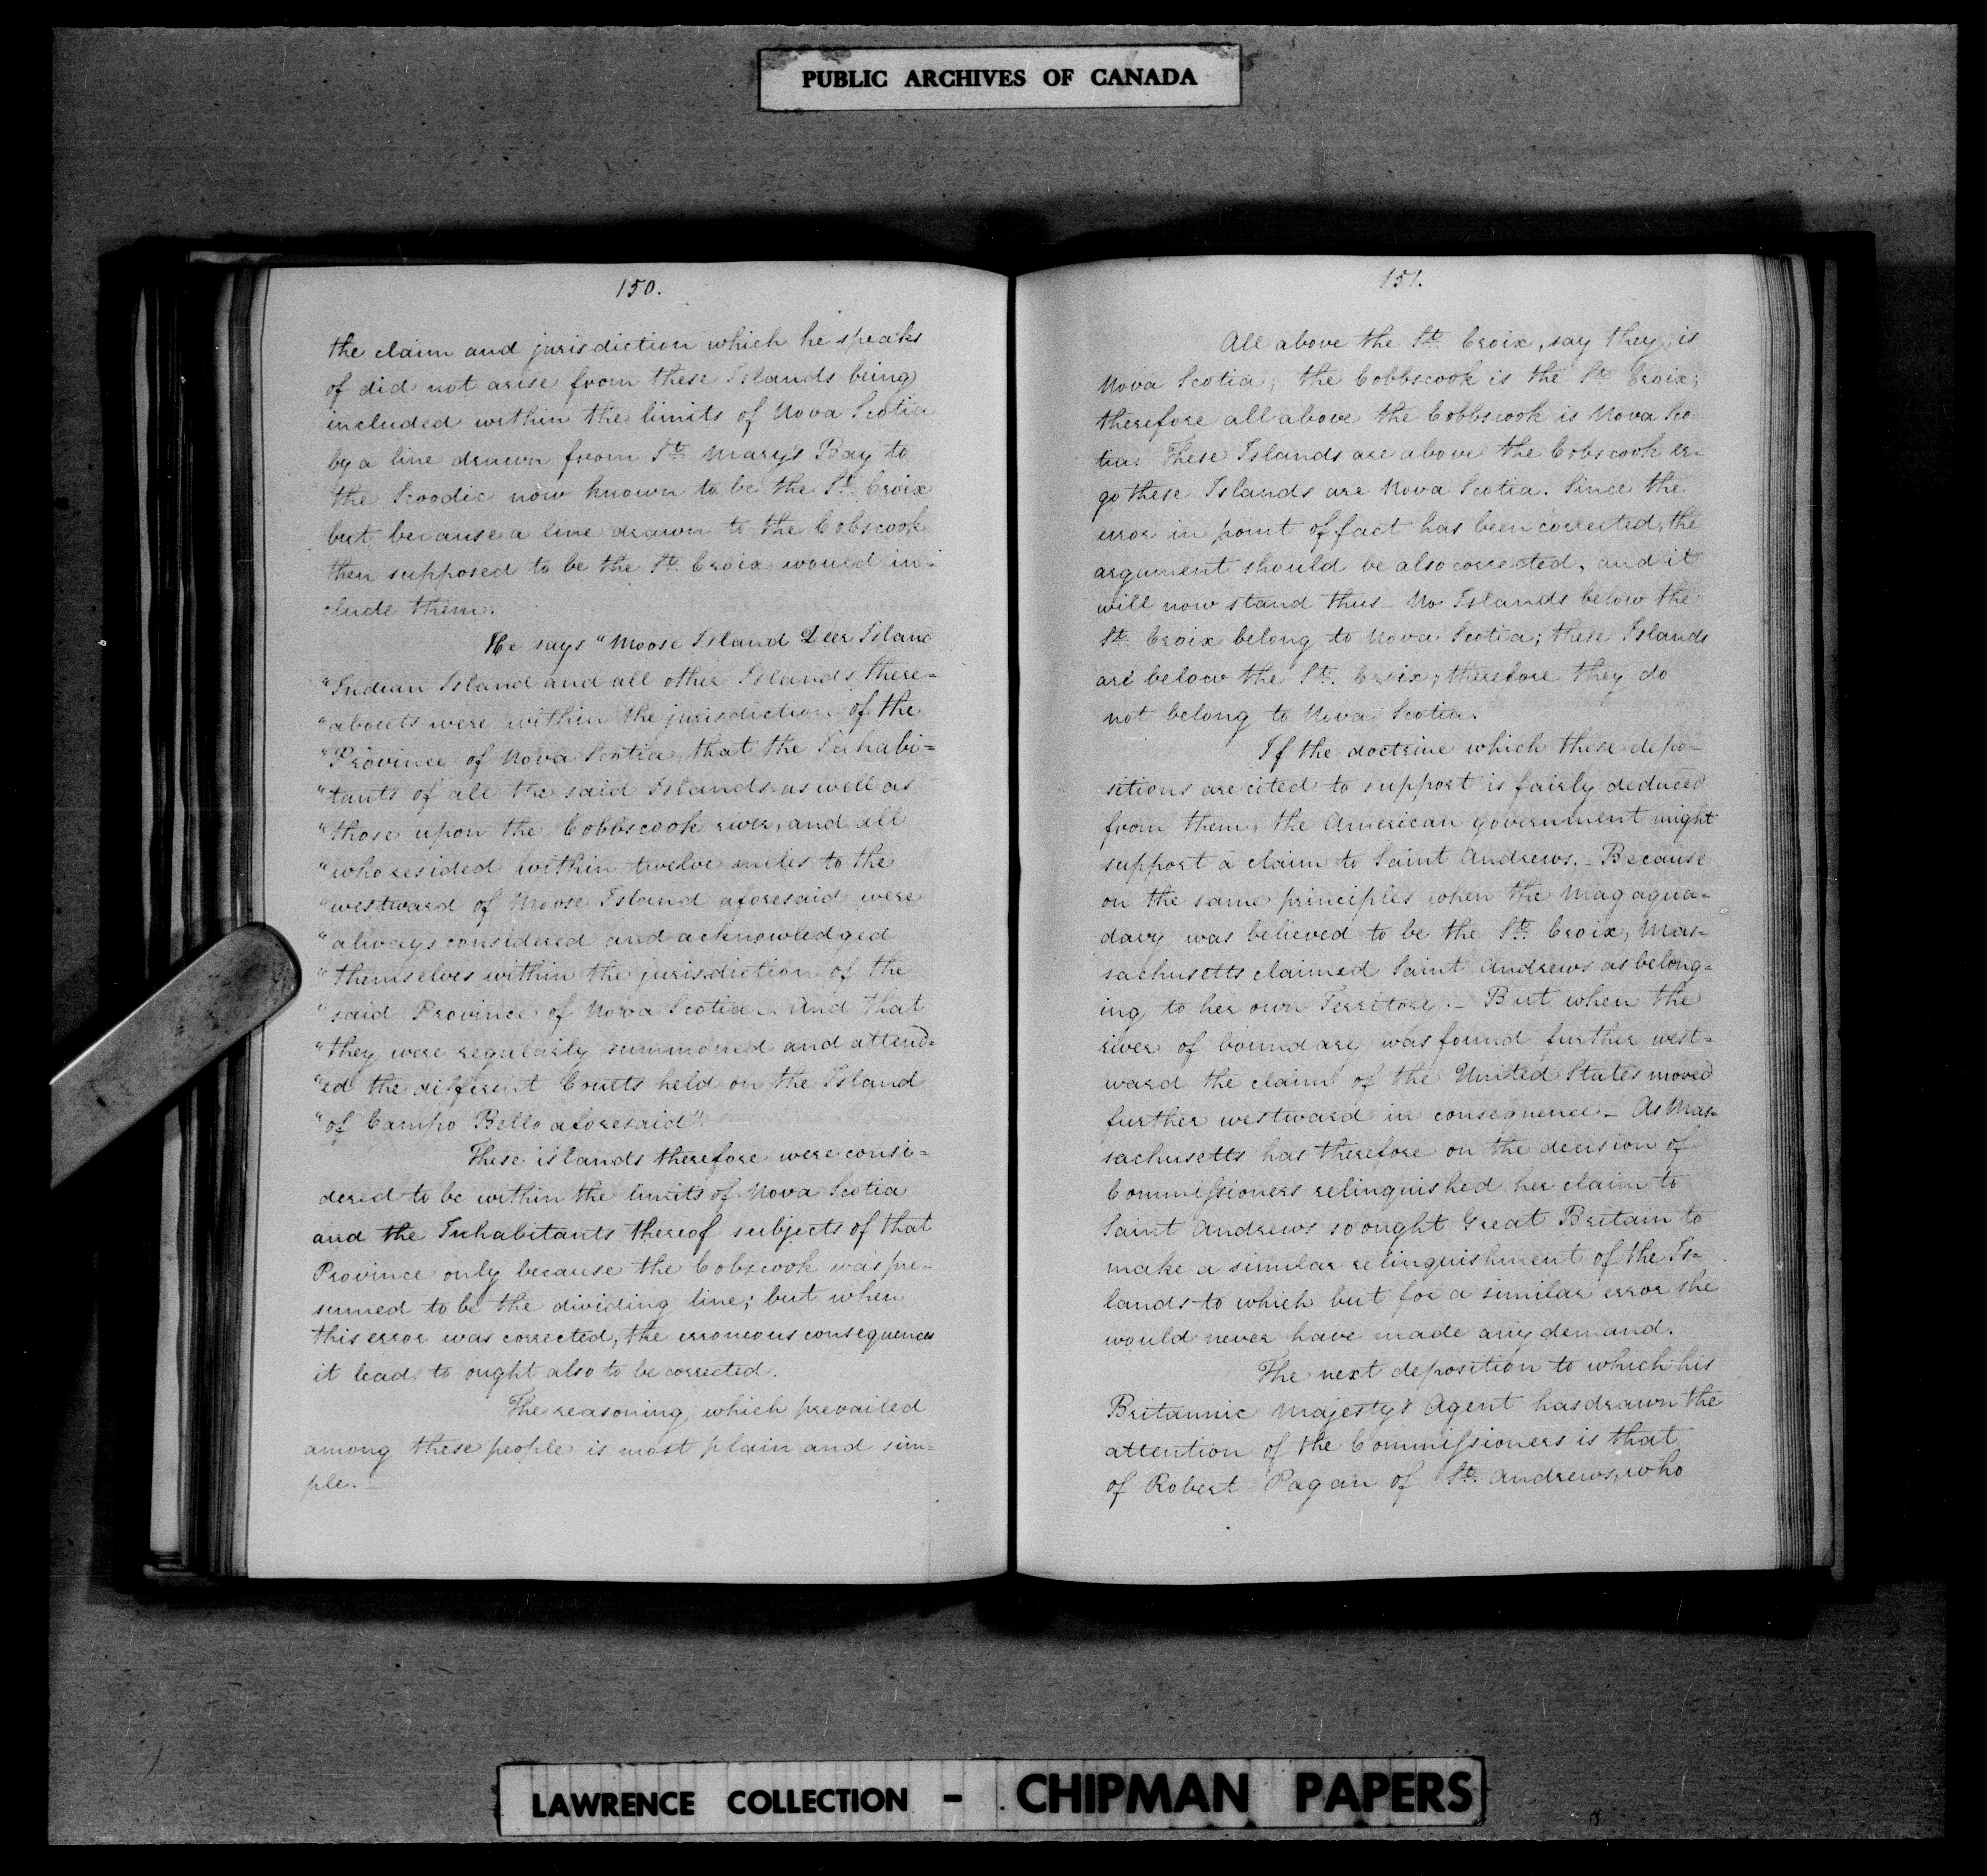 PUBLIC ARCHIVES OF CANADA
150.
the claim and jurisdiction which he speaks
of did not arise from these Islands being
included within the limits of Nova Scotia
by a line drawn from St. Mary's Bay to
the Scoodic now known to be the St. Croix
but because a line drawn to the Cobscook
then supposed to be the St. Croix would in-
clude them.
He says "Moose Island Deer Island
"Indian Island and all other Islands there-
"abouts were within the jurisdiction of the
"Province of Nova Scotia, that the Inhabi=
"tants of all the said Islands as well as
"those upon the Cobbscook river, and all
"who resided within twelve miles to the
"westward of Moose Island aforesaid were
"always considered and acknowledged
"themselves within the jurisdiction of the
"said Province of Nova Scotia. And that
"they were regularly summoned and attend=
"ed the different Courts held on the Island
"of Campo Bello aforesaid".
These islands therefore were consi=
dered to be within the limits of Nova Scotia
and the Inhabitants thereof subjects of that
Province only because the Cobscook was pre-
sumed to be the dividing line; but when
this error was corrected, the erroneous consequences
it lead to ought also to be corrected.
The reasoning which prevailed
among these people is most plain and sim=
ple. _
151.
All above the St. Croix, say they, is
Nova Scotia; the Cobbscook is the St. Croix;
therefore all above the Cobbscook is Nova Sco-
tia: These Islands are above the Cobscook er-
go these Islands are Nova Scotia. Since the
error in point of fact has been corrected, the
argument should be also corrected, and it
will now stand thus _ No Islands below the
St. Croix belong to Nova Scotia; these Islands
are below the St. Croix; therefore they do
not belong to Nova Scotia.
If the doctrine which these depo-
sitions are cited to support is fairly deduced
from them, the American government might
support a claim to Saint Andrews. _ Because
on the same principles when the Magagua-
davy was believed to be the St. Croix, Mas-
sachusetts claimed Saint Andrews as belong=
ing to her own Territory. _ But when the
river of boundary was found further west=
ward the claim of the United States moved
further westward in consequence _ As Mas-
sachusetts has therefore on the decision of
Commissioners relinquished her claim to
Saint Andrews so ought Great Britain to
make a similar relinquishment of the Is=
lands to which but for a similar error she
would never have made any demand.
The next deposition to which his
Britannic Majesty's Agent has drawn the
attention of the Commissioners is that
of Robert Pagan of St. Andrews, who
LAWRENCE COLLECTION - CHIPMAN PAPERS